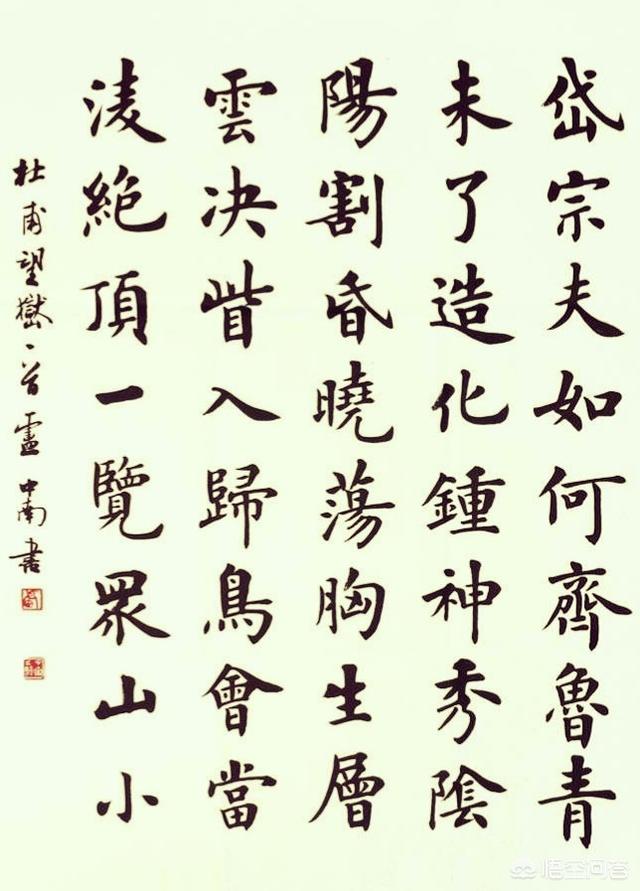 岱宗夫如何齊魯青
未了造化鍾神秀陰
陽割昏曉蕩胸生層
雲决眥入歸鳥會當
淩絶頂一覽眾山小
杜甫望嶽一首盧中南書
悟空问答